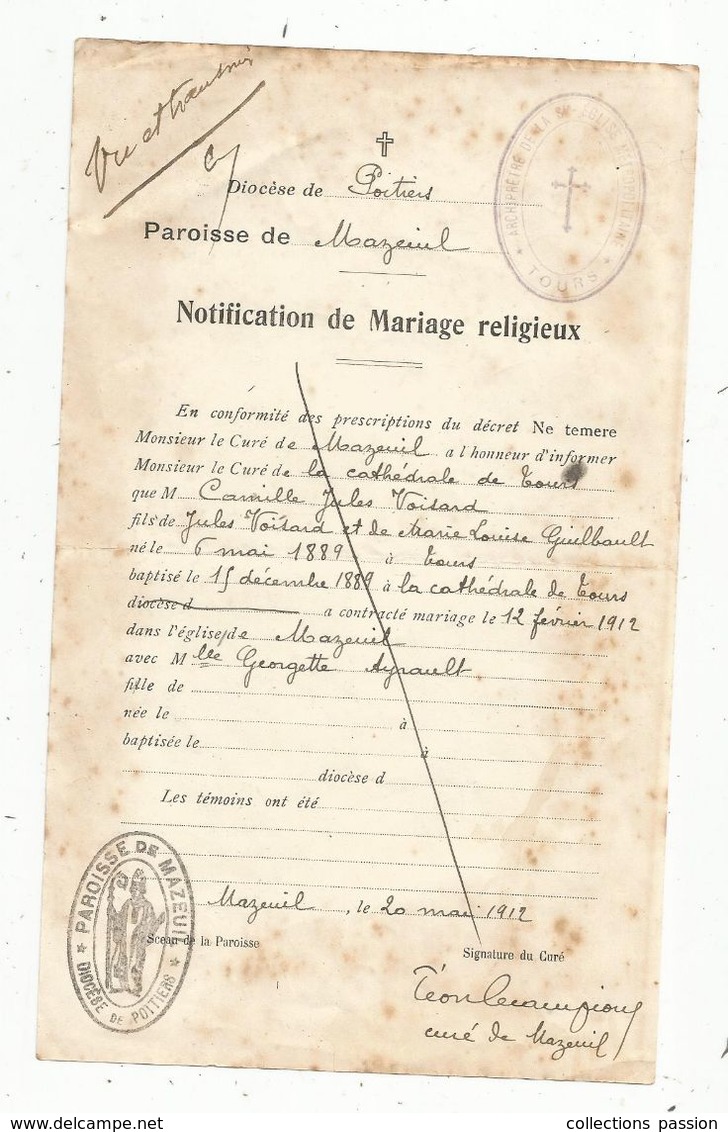 Vu et transmis
ARCHIPRÊTRE DE LA
TOURS
Diocèse de Poitiers
Paroisse de Mazeuil
Notification de Mariage religieux
En conformité des prescriptions du décret Ne temere
Monsieur le Curé de Mazeuil a l'honneur d'informer
Monsieur le Curé de la cathédrale de Tours
que M Camille Jules Voisard
fils de Jules Voisard et de Marie Louise Guilbault
né le 6 mai 1889 à Tours
baptisé le 15 décembre 1889 à la cathédrale de Tours
diocèse d a contracté mariage le 12 février 1912
dans l'église de Mazeuil
avec Mlle Georgette Ayrault
fille de
née le à
baptisée le à
diocèse d
Les témoins ont été
Mazeuil, le 20 mai 1912
Sceau de la Paroisse
Signature du Curé
PAROISSE DE MAZEUIL
DIOCÈSE DE POITIERS
curé de Mazeuil
collections passion